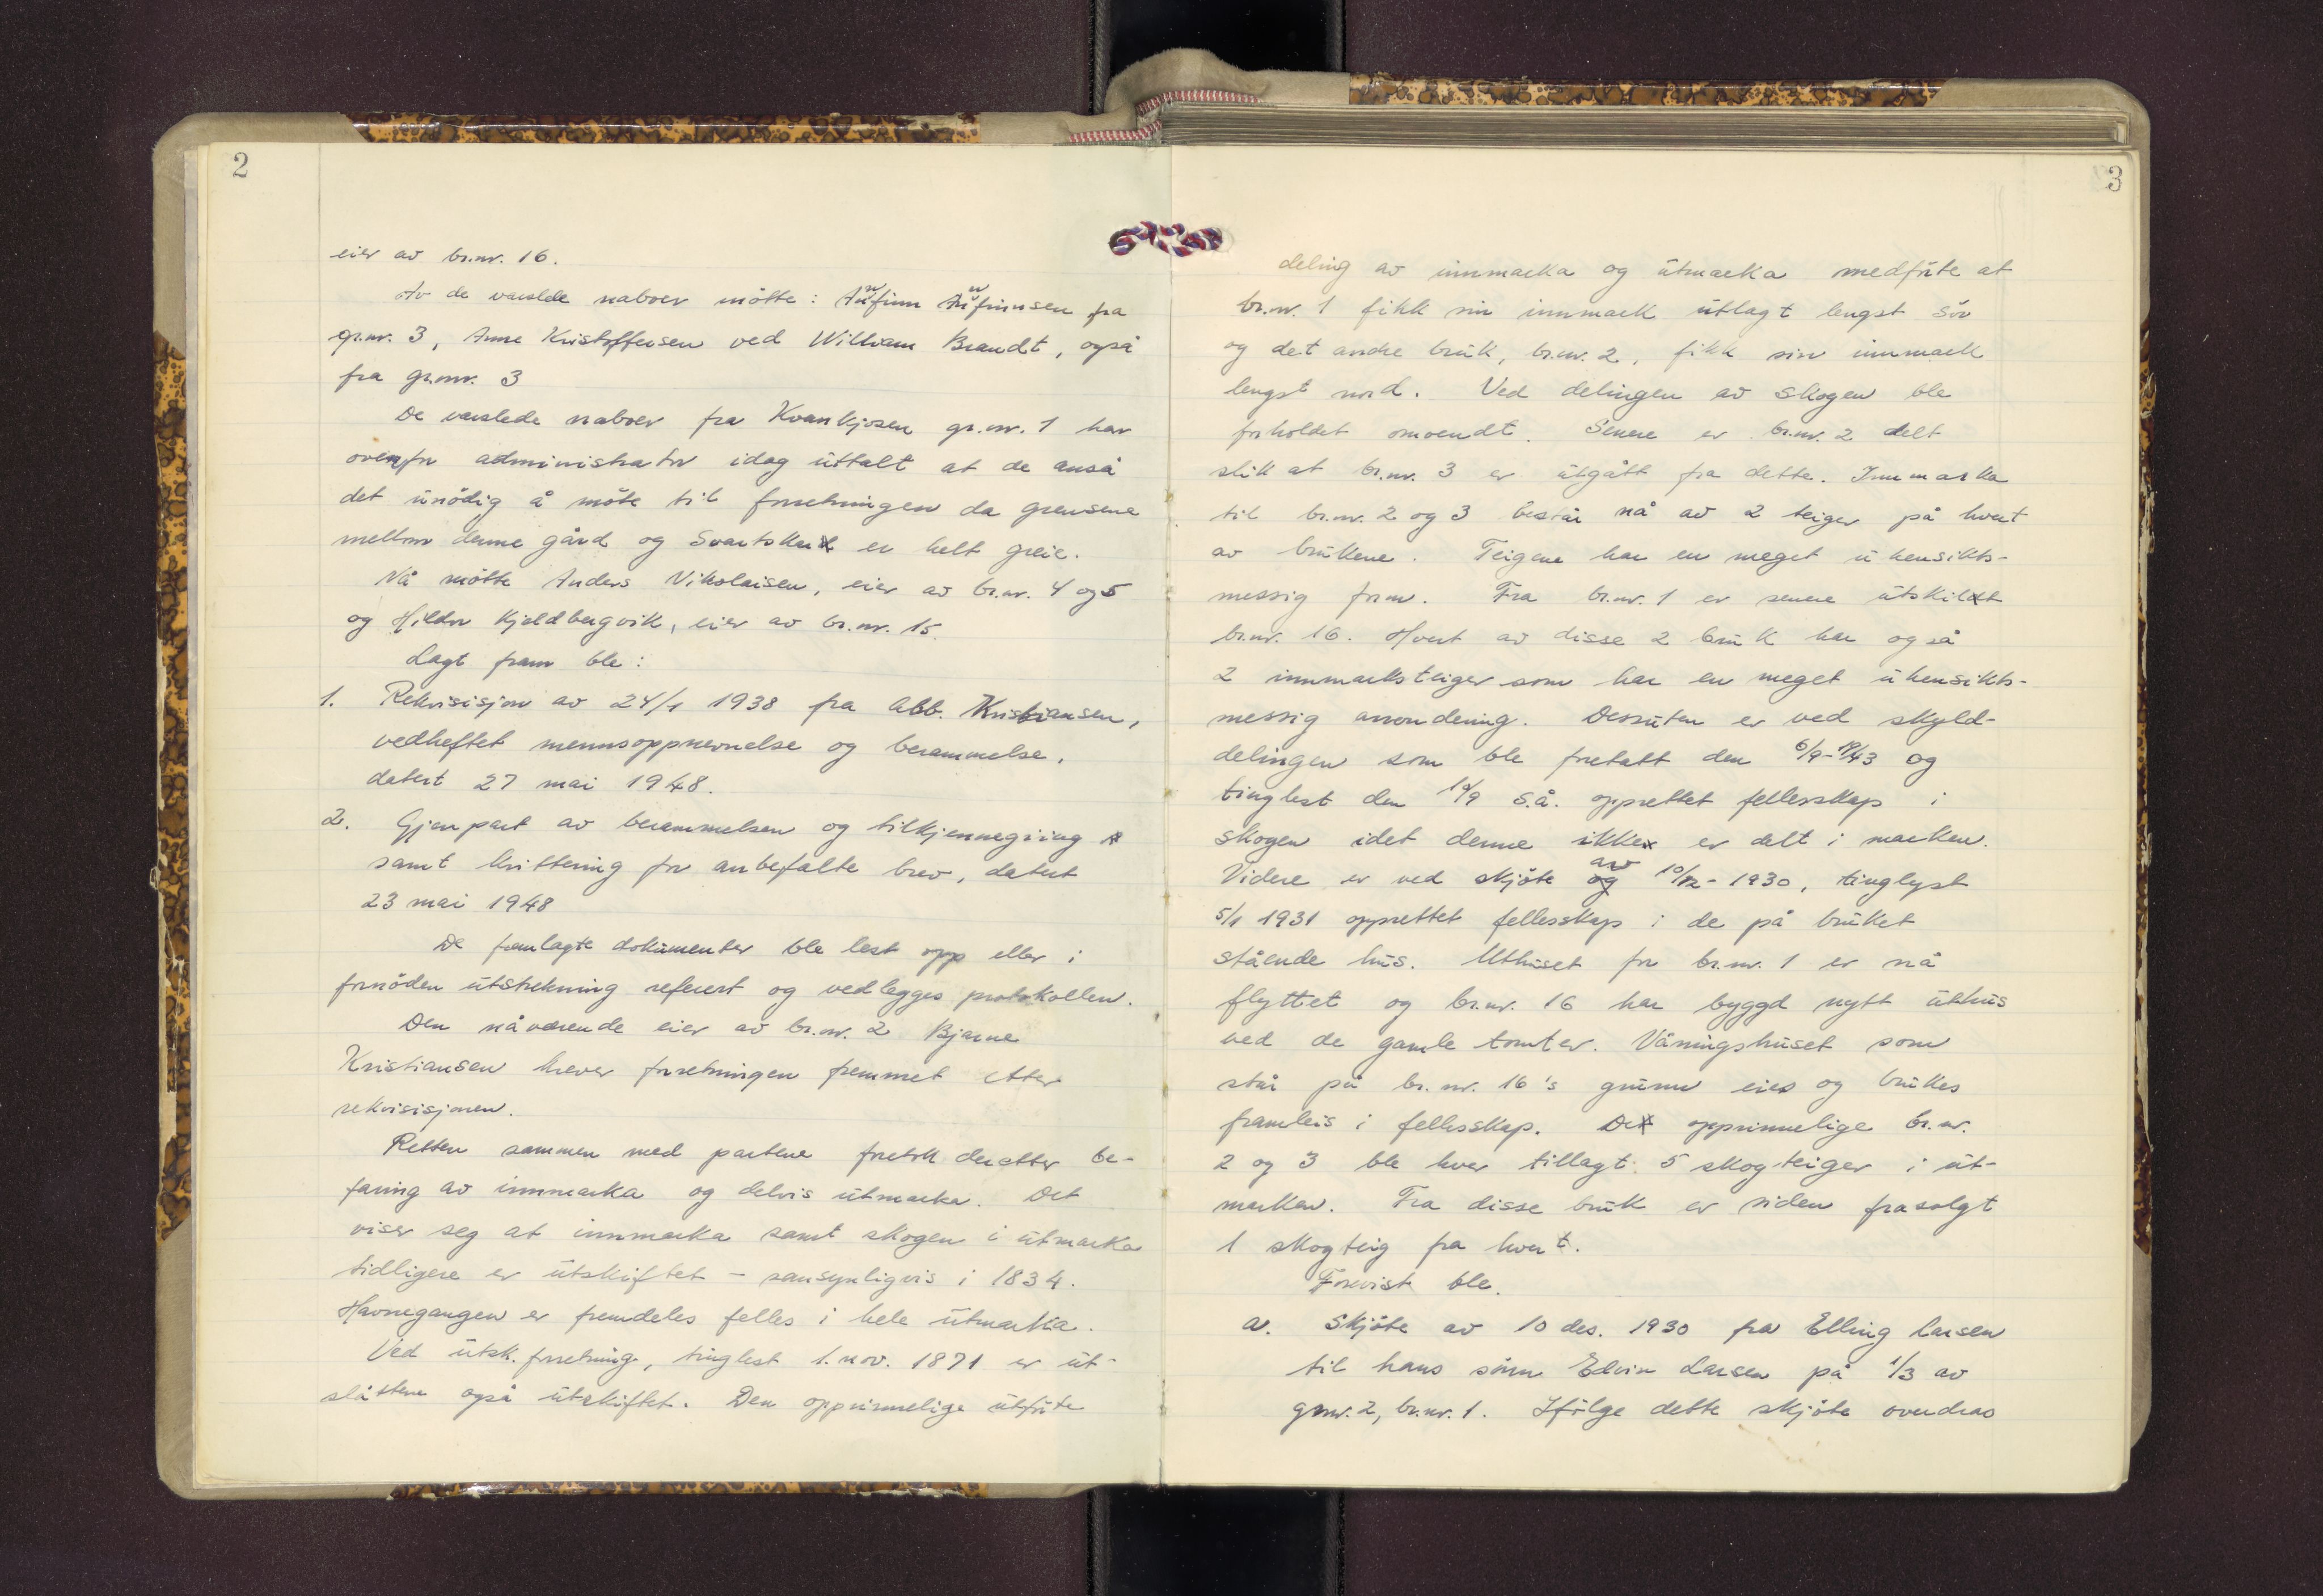 2
eier av br.nr. 16.
Av de varslede naboer møtte: Arnfinn Arnfinnsen fra
gr.nr. 3, Anne Kristoffersen ved William Brandt, også
fra gr.nr. 3
De varslede naboer fra Kvankjosen gr.nr. 1 har
ovenfor administrator idag uttalt at de anså
det unödig å möte til forretningen da grensene
mellom denne gård og Svartskard er helt greie.
Nå mötte Anders Nikolaisen, eier av br.nr. 4 og 5
og Hildor Kjeldbergvik, eier av br.nr. 15.
Lagt fram ble:
1. Rekvisisjon av 24/1 1938 fra Abb. Kristiansen,
vedheftet mennsoppnevnelse og berammelse,
datert 27 mai 1948.
2. Gjenpart av berammelsen og tilkjennegiing
samt kvittering for anbefalte brev, datert
23 mai 1948
De framlagte dokumenter ble lest opp eller i
fornöden utstrekning referert og vedlegges protokollen.
Den nåværende eier av br.nr. 2 Bjarne
Kristiansen krever forretningen fremmet etter
rekvisisjonen.
Retten sammen med partene foretok deretter be-
faring av innmarka og delvis utmarka. Det
viser seg at innmarka samt skogen i utmarka
tidligere er utskiftet - sansynligvis i 1834.
Havnegangen er fremdeles felles i hele utmarka.
Ved utsk. forretning, tinglest 1. nov. 1871 er ut-
slåttene også utskiftet. Den opprinnelige utförte
3
deling av innmarka og utmarka medförte at
br.nr. 1 fikk sin innmark utlagt lengst sör
og det andre bruk, br.nr. 2, fikk sin innmark
lengst nord. Ved delingen av skogen ble
forholdet omvendt. Senere er br.nr. 2 delt
slik at br.nr. 3 er utgått fra dette. Innmarka
til br.nr. 2 og 3 består nå av 2 teiger på hvert
av brukene. Teigene har en meget uhensikts-
messig form. Fra br.nr. 1 er senere utskilt
br.nr. 16. Hvert av disse 2 bruk har også
2 innmarksteiger som har en meget uhensikts-
messig arrondering. Dessuten er ved skyld-
delingen som ble foretatt den 6/9-43 og
tinglest den 14/9 s.å. opprettet fellesskap i
skogen idet denne ikke er delt i marken.
Videre er ved skjöte av 10/12-1930, tinglyst
5/1 1931 opprettet fellesskap i de på bruket
stående hus. Uthuset for br.nr. 1 er nå
flyttet og br.nr. 16 har byggd nytt uthus
ved de gamle tomter. Våningshuset som
står på br.nr. 16's grunn eies og brukes
framleis i fellesskap. De opprinnelige br.nr.
2 og 3 ble hver tillagt 5 skogteiger i ut-
marken. Fra disse bruk er siden frasolgt
1 skogteig fra hvert.
Forevist ble.
a. Skjöte av 10 des. 1930 fra Elling Larsen
til hans sönn Edvin Larsen på 1/3 av
gnr. 2, br.nr. 1. Ifölge dette skjöte overdras